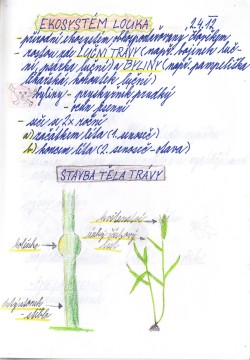 EKOSYSTÉM LOUKA
- přírodní ekosystém obhospodařovaný člověkem
- rostou zde LUČNÍ TRÁVY (např. bojínek luč-
ní, psárka luční) a BYLINY (např. pampeliška
lékařská, kohoutek luční)
- byliny - pryskyřník prudký
- seče se 2x ročně
a) začátkem léta (1. senoseč)
b) koncem léta (2. senoseč - otava)
STAVBA TĚLA TRÁVY
kolénko
- stéblo